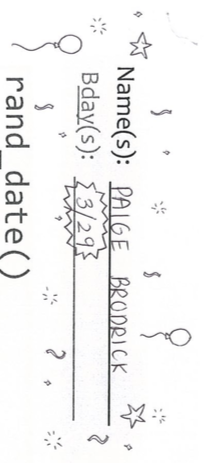 Name(s): PAIGE BRODRICK
Bday(s): 3/29
rand_date()